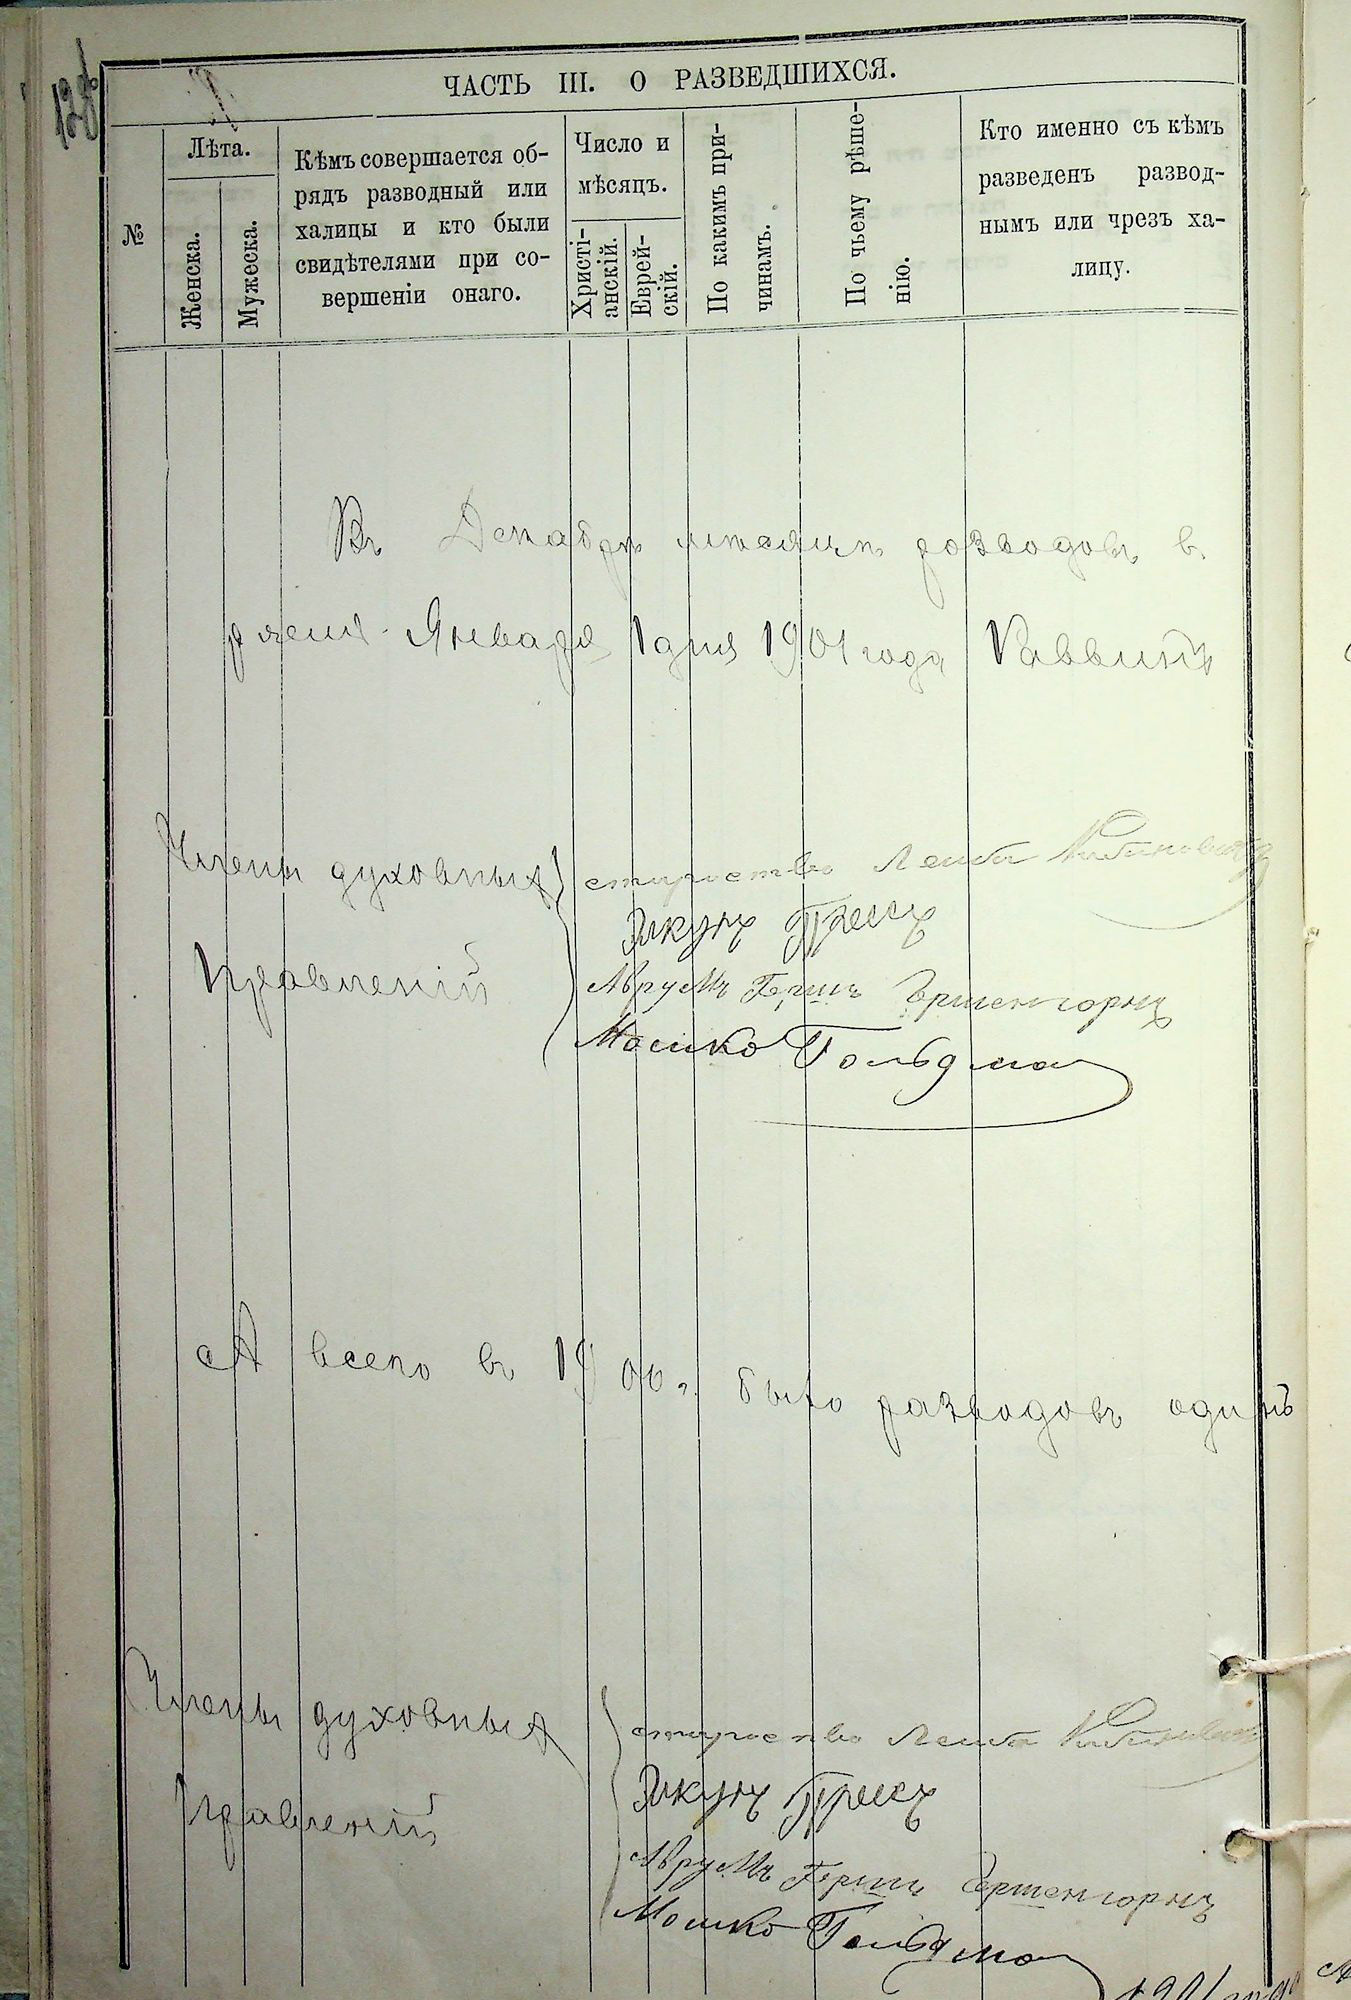 128
ЧАСТЬ III. О РАЗВЕДШИХСЯ.
№
Лѣта.
Женска.
Мужеска.
Кѣмъ совершается об-
рядъ разводный или
халицы и кто были
свидѣтелями при со-
вершеніи онаго.
Число и
мѣсяцъ.
Христі-
анскій.
Еврей-
скій.
По какимъ при-
чинамъ.
По чьему рѣше-
нію.
Кто именно съ кѣмъ
разведенъ развод-
нымъ или чрезъ ха-
лицу.
Въ Декабрѣ мѣсяцѣ разводовъ
Января 1 дня 1901 года Раввинъ
Члены духовныхъ
Правленій
староство Лейба
Авrумъ Гершъ
Мошко Гольдма
А всего въ 1900 г. было разводовъ одинъ
Члены духовныхъ
Правленій
староство Лейба
Аврумъ Гершъ
Мошко Гольдма
1901 года